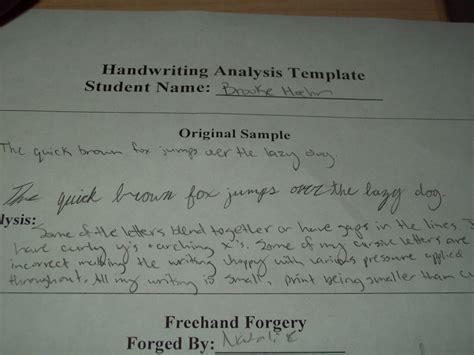 Handwriting Analysis Template
Student Name: Brooke Hoehn
Original Sample
The quick brown fox jumps over the lazy dog.
The quick brown fox jumps over the lazy dog.
lysis: Some of the letters blend together or have gaps in the lines. I
have curly y's + arching x's. Some of my cursive letters are
incorrect making the writing choppy with various pressure applied
throughout. All my writing is small, print being smaller than cu
Freehand Forgery
Forged By: Natalie